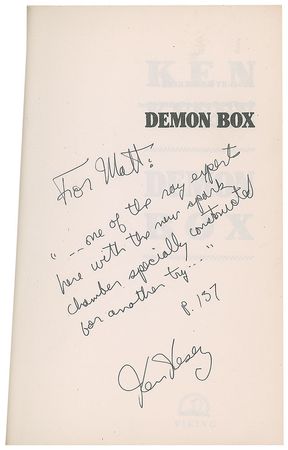 DEMON BOX
For Matt:
"--one of the ray expert
here with the new spark
chamber specially constructed
for another try..."
p. 137
Ken Kesey
VIKING